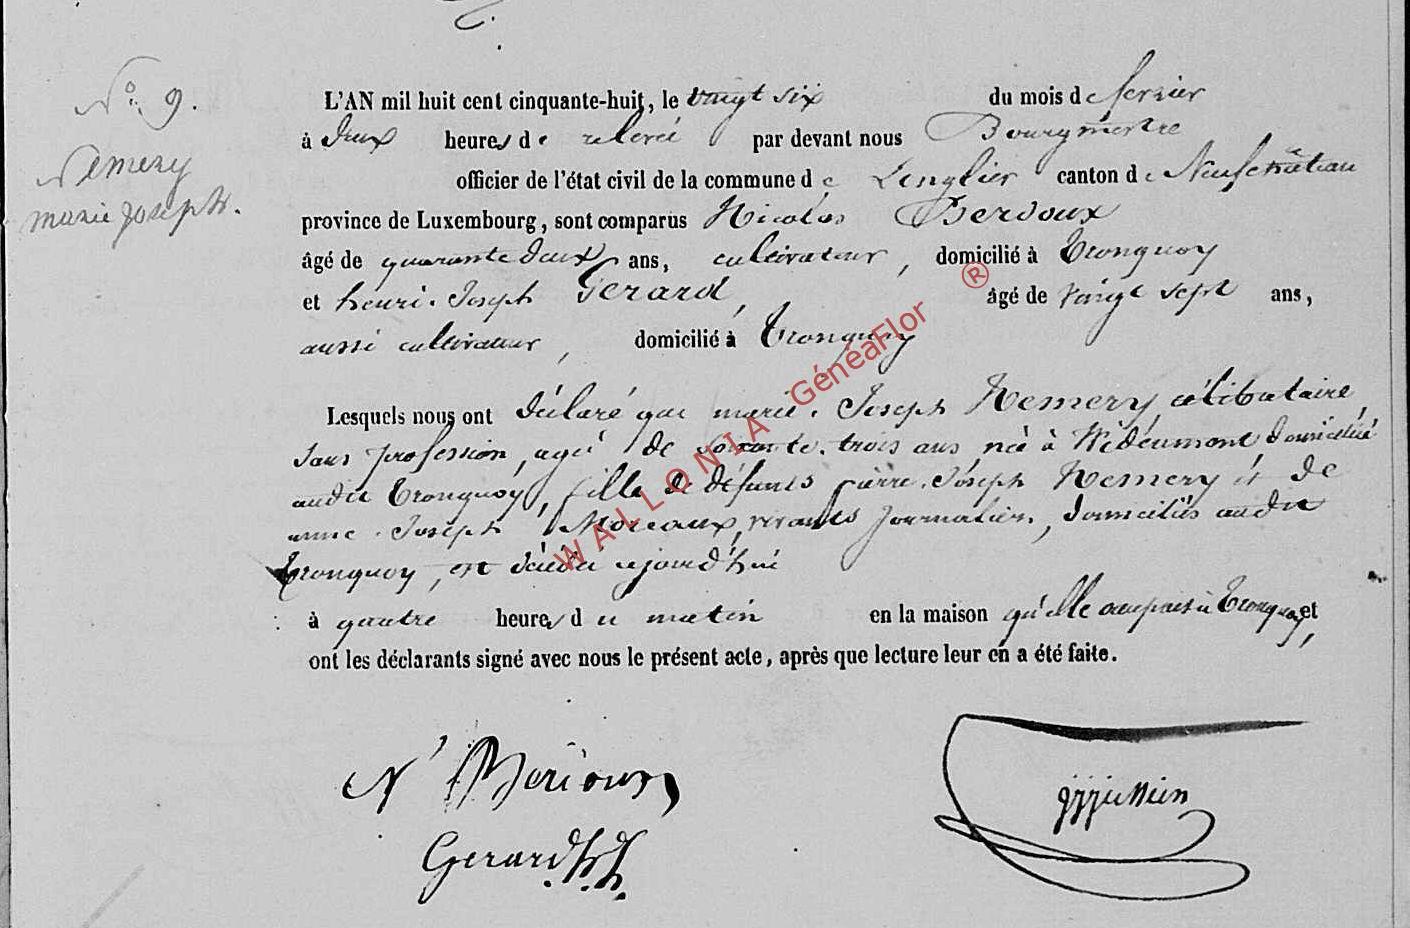 N° 9.
Nemery
marie joseph.
L'AN mil huit cent cinquante-huit, le vingt six du mois de fevrier
à deux heures de relevée par devant nous Bourgmestre
officier de l'état civil de la commune de Longlier canton de Neufchâteau
province de Luxembourg, sont comparus Nicolas
âgé de quarante deux ans, cultivateur, domicilié à Tronquoy
et henri. Joseph Gerard, âgé de vingt sept ans,
aussi cultivateur, domicilié à Tronquoy
Lesquels nous ont déclaré que marie. Joseph Nemery, célibataire,
sans profession, agée de soixante. trois ans, née à Wideumont, domiciliée
audit Tronquoy, fille de défunts pierre. Joseph Nemery et de
anne. Joseph Moreaux, vivants journaliers, domiciliés audit
Tronquoy, est décédée ajourd'hui
à quatre heures du matin en la maison qu'elle occupait à Tronquoy, et
ont les déclarants signé avec nous le présent acte, après que lecture leur en a été faite.
WALLONIA GénéaFlor ®
Gerard h. J.